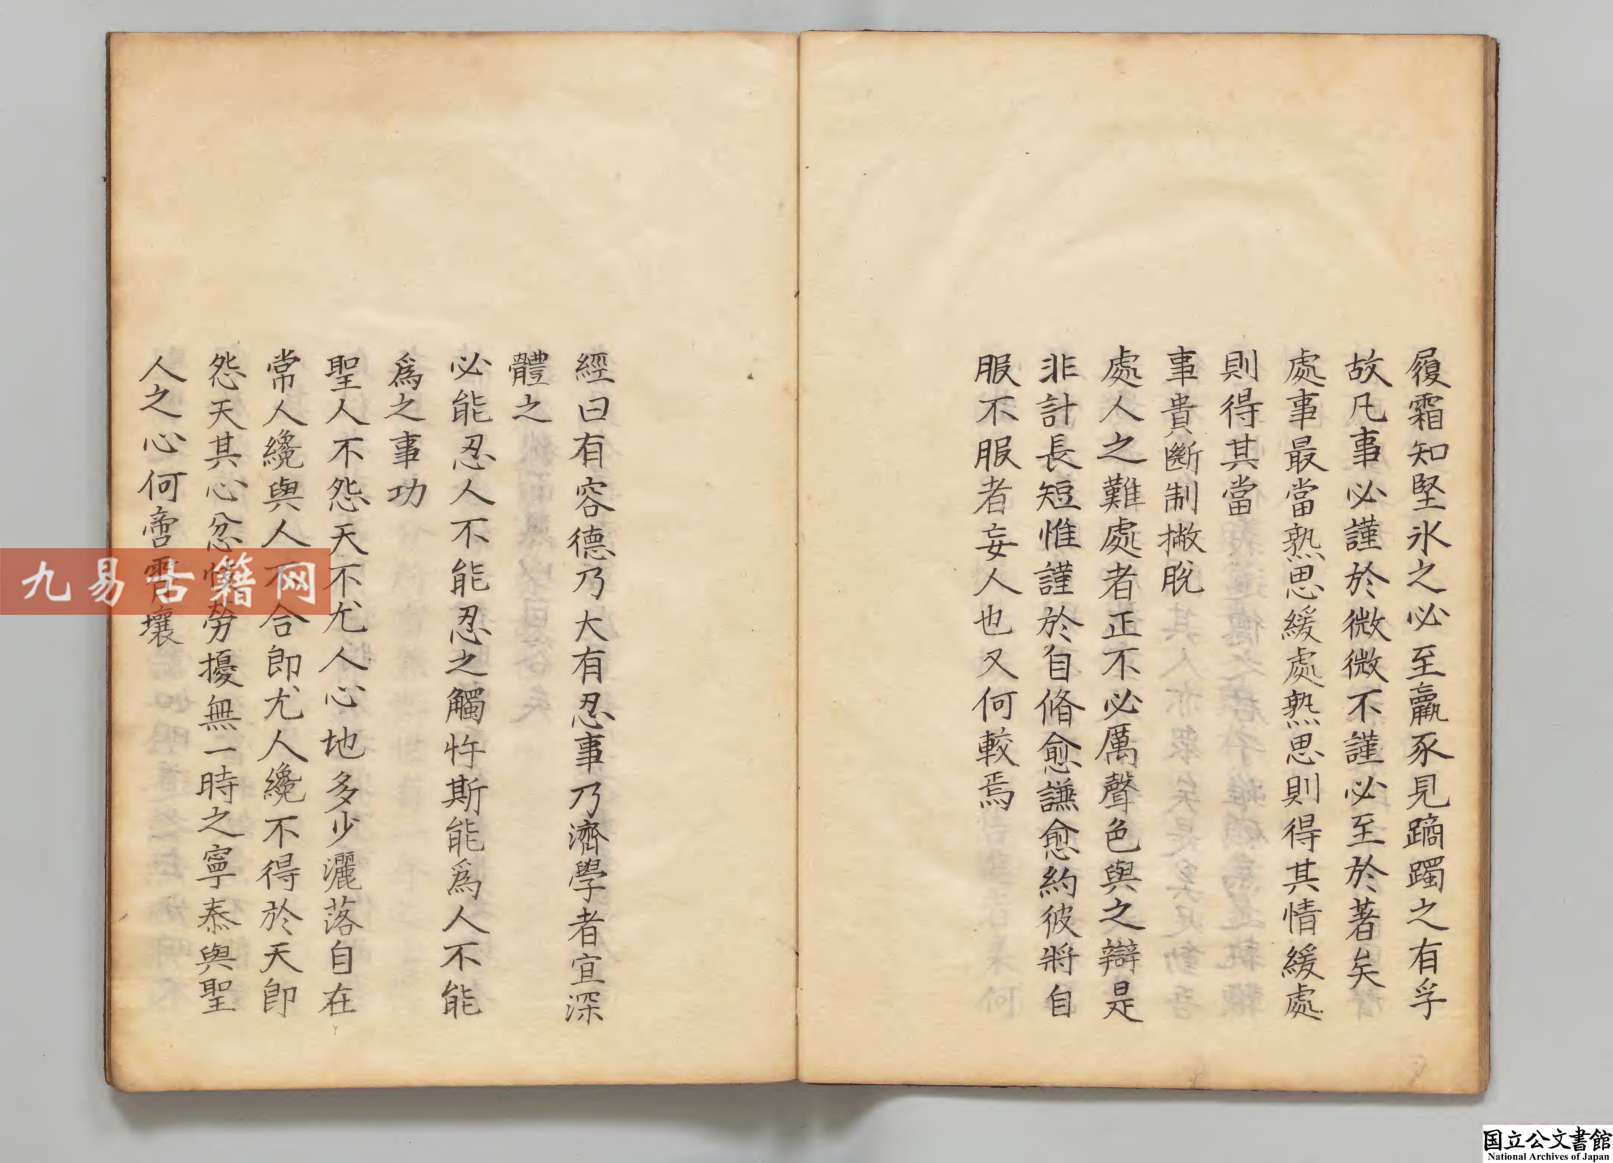 履霜知堅氷之必至羸豕見蹢躅之有孚
故凡事必謹於微微不謹必至於著矣
處事最當熟思緩處熟思則得其情緩處
則得其當
事貴斷制撇脫
處人之難處者正不必厲聲色與之辯是
非計長短惟謹於自脩愈謙愈約彼將自
服不服者妄人也又何較焉
經曰有容德乃大有忍事乃濟學者宜深
體之
必能忍人不能忍之觸忤斯能爲人不能
爲之事功
聖人不怨天不尤人心地多少灑落自在
常人纔與人不合即尤人纔不得於天即
怨天其心忿憧勞擾無一時之寧泰與聖
人之心何啻霄壤
九易古籍网
国立公文書館
National Archives of Japan